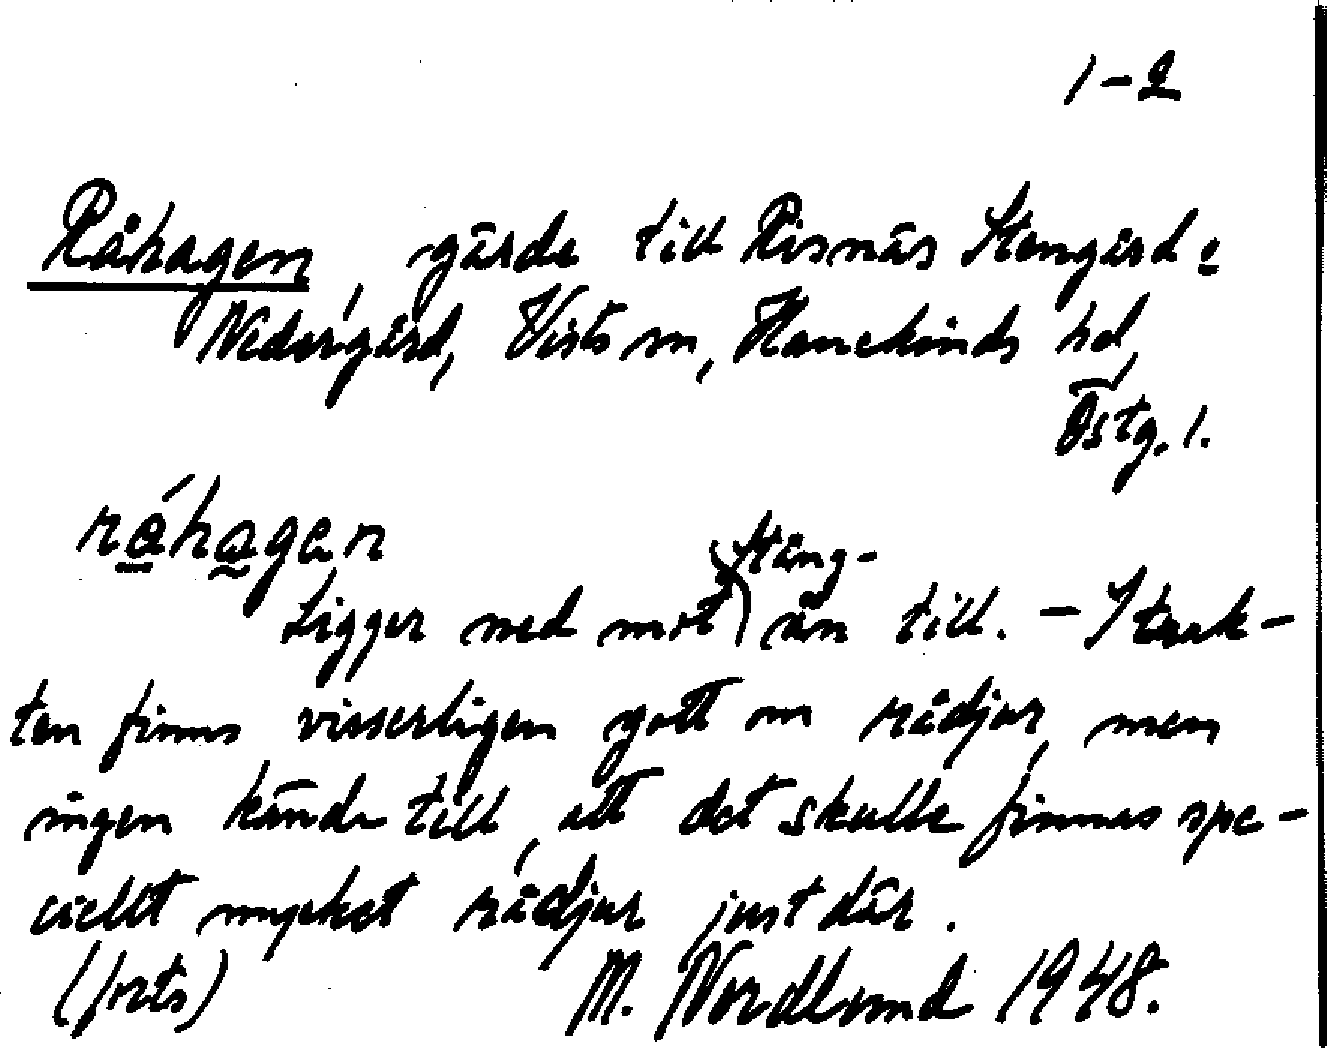 1-2
Råhagen, gärde till Risnäs Stengård o
Nedergård, Vists sn, Hanekinds hd,
Östg. l.
råhagen
Stång-
Ligger ned mot ån till. - I trak-
ten finns visserligen gott om rådjur, men
ingen kände till, att det skulle finnas spe-
ciellt mycket rådjur just där.
(forts) M. Nordlund 1948.